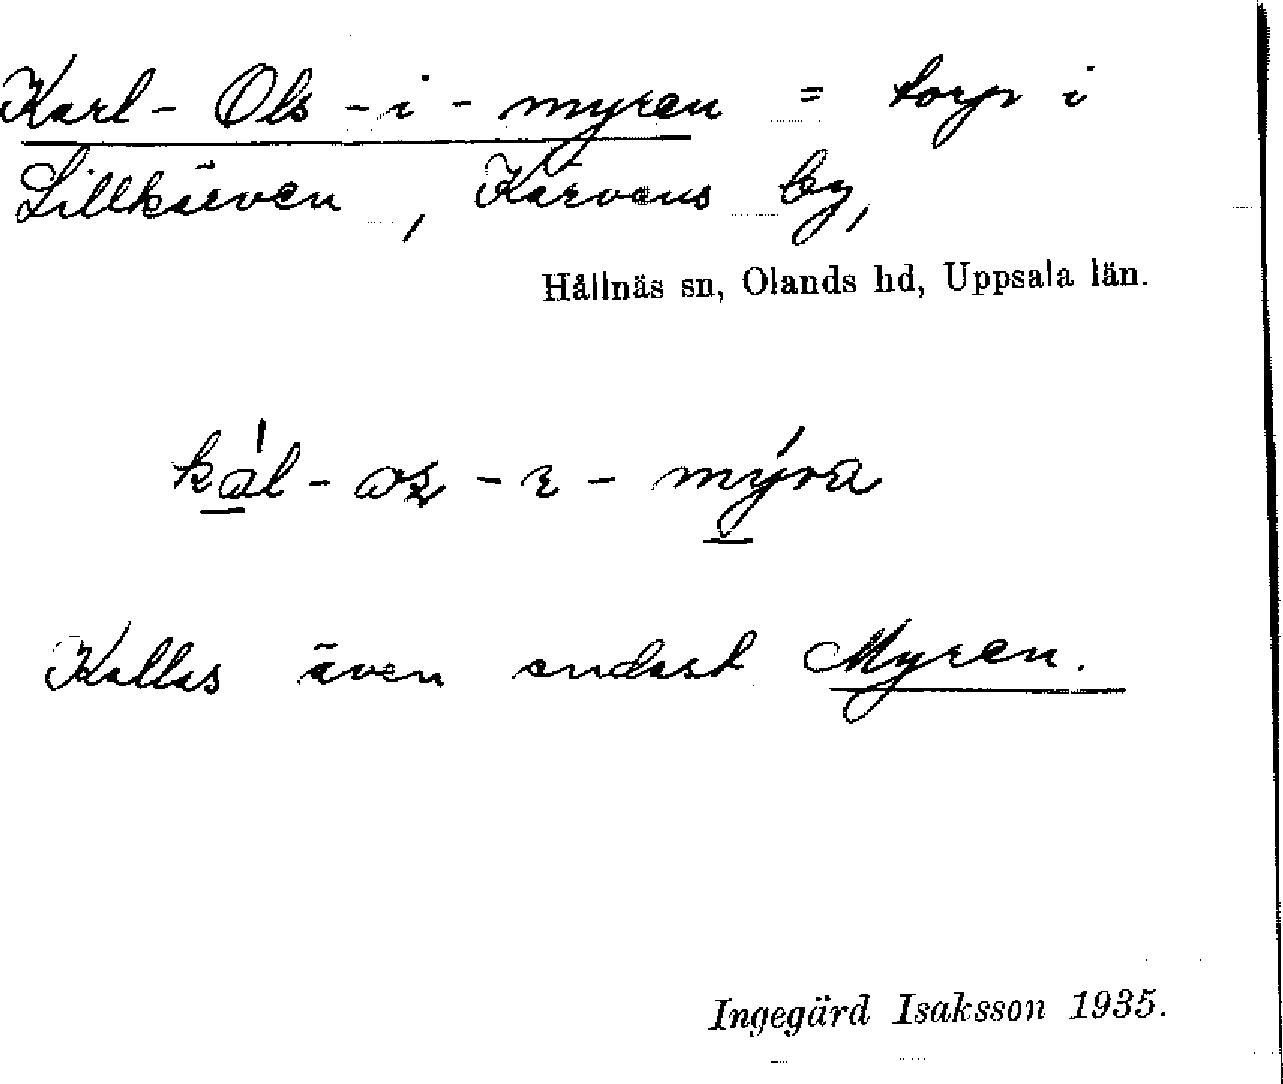 Karl-Ols-i-myren = torp i
Lillkärven, Kärvens by,
Hållnäs sn, Olands hd, Uppsala län.
Kallas även endast Myren.
Ingegärd Isaksson 1935.